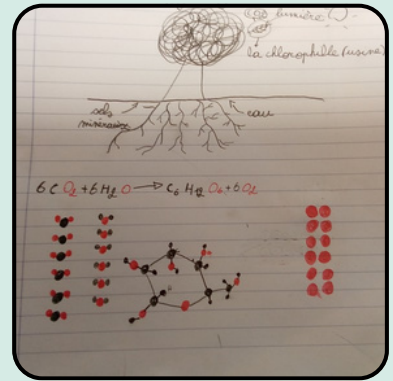 lumière
la chlorophille (usine)
sels eau
minéraux
6 C O₂ + 6 H₂ O → C₆ H₁₂ O₆ + 6 O₂